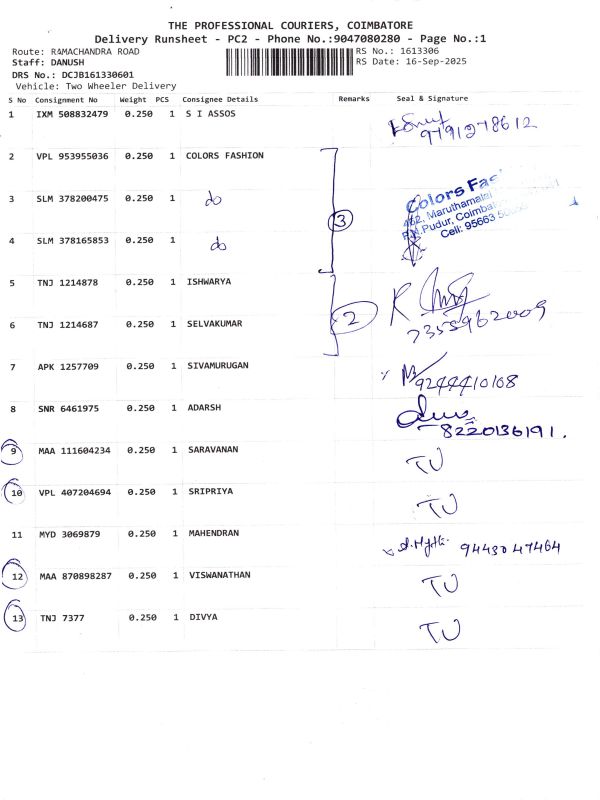 THE PROFESSIONAL COURIERS, COIMBATORE
Delivery Runsheet - PC2 - Phone No.:9047080280 - Page No.:1
Route: RAMACHANDRA ROAD
RS No.: 1613306
Staff: DANUSH
RS Date: 16-Sep-2025
DRS No.: DCJB161330601
Vehicle: Two Wheeler Delivery
S No Consignment No Weight PCS Consignee Details Remarks Seal & Signature
1 IXM 508832479 0.250 1 S I ASSOS
9791278612
2 VPL 953955036 0.250 1 COLORS FASHION
3 SLM 378200475 0.250 1 do
3
Colors Fas
452, Maruthamalai
P.N.Pudur, Coimba
Cell: 95663
4 SLM 378165853 0.250 1 do
5 TNJ 1214878 0.250 1 ISHWARYA
6 TNJ 1214687 0.250 1 SELVAKUMAR 2
7355962009
7 APK 1257709 0.250 1 SIVAMURUGAN
9244410108
8 SNR 6461975 0.250 1 ADARSH
8220136191.
9 MAA 111604234 0.250 1 SARAVANAN TU
10 VPL 407204694 0.250 1 SRIPRIYA TU
11 MYD 3069879 0.250 1 MAHENDRAN 9443047464
12 MAA 870898287 0.250 1 VISWANATHAN TU
13 TNJ 7377 0.250 1 DIVYA TU